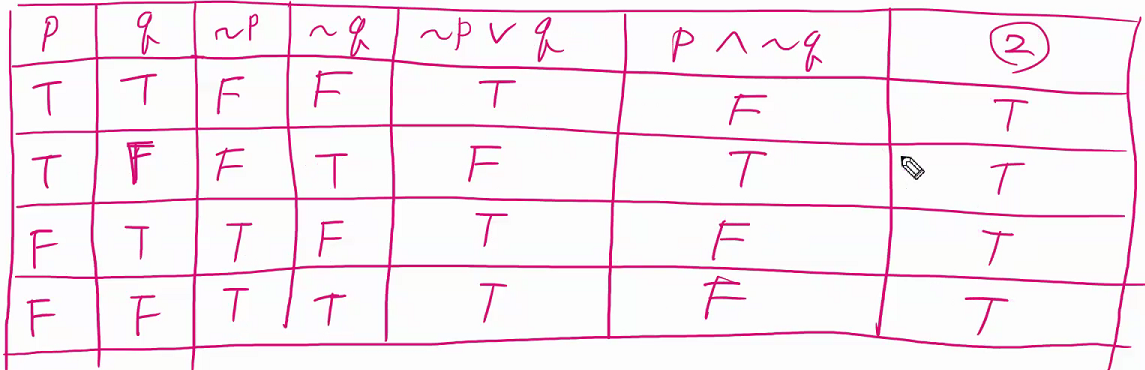 p q ~p ~q ~p ∨ q p ∧ ~q ②
T T F F T F T
T F F T F T T
F T T F T F T
F F T T T F T